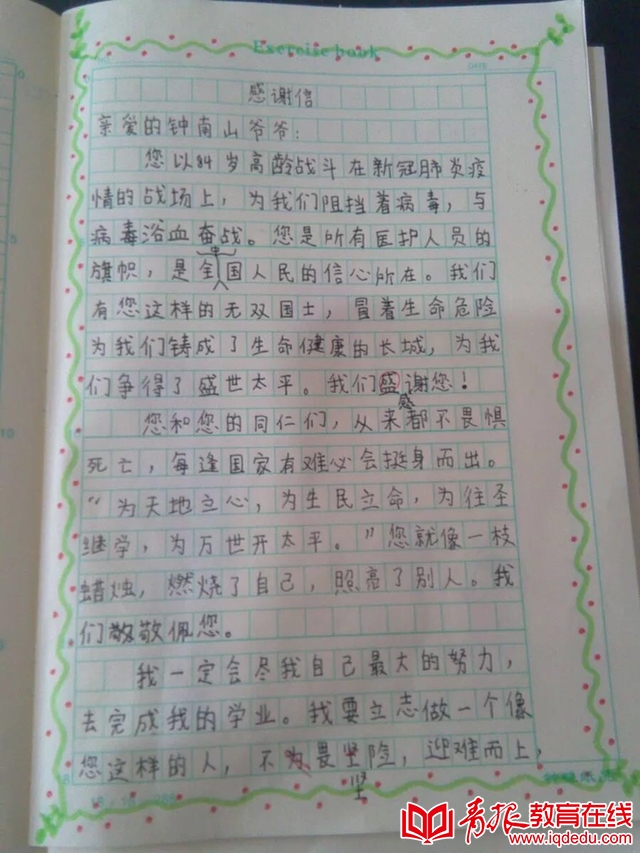 Exercise book
感谢信
亲爱的钟南山爷爷：
您以84岁高龄战斗在新冠肺炎疫
情的战场上，为我们阻挡着病毒，与
病毒浴血奋战。您是所有医护人员的
中
旗帜，是全国人民的信心所在。我们
有您这样的无双国士，冒着生命危险
为我们铸成了生命健康的长城，为我
们争得了盛世太平。我们盛谢您！
感
您和您的同仁们，从来都不畏惧
死亡，每逢国家有难必会挺身而出。
“为天地立心，为生民立命，为往圣
继学，为万世开太平。”您就像一枝
蜡烛，燃烧了自己，照亮了别人。我
们敬佩您。
我一定会尽我自己最大的努力，
去完成我的学业。我要立志做一个像
您这样的人，不畏坚险，迎难而上，
坚
青报教育在线
www.iqdedu.com